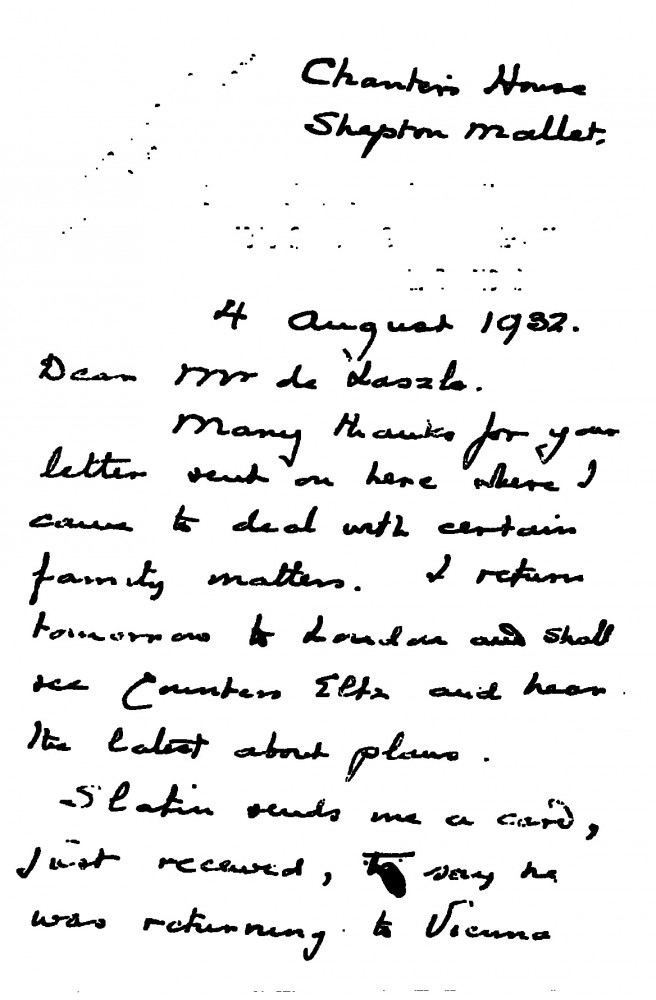 Chanter's House
Shepton Mallet.
4 August 1932.
Dear Mr de Laszlo.
Many thanks for your
letter sent on here where I
came to deal with certain
family matters. I return
tomorrow to London and shall
see Countess Eltz and hear
the latest about plans.
Slatin sends me a card,
just received, to say he
was returning to Vienna